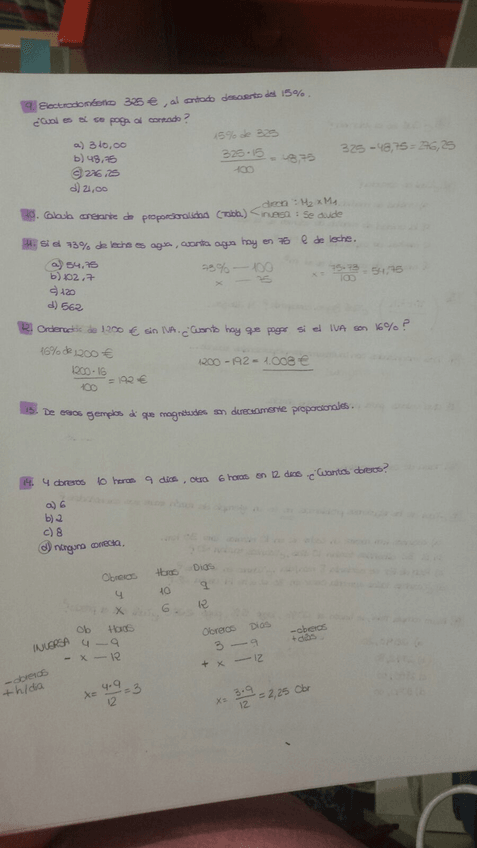 9. Electrodoméstico 325 €, al contado descuento del 15%.
¿Cuál es si se paga al contado?
a) 310,00
b) 48,75
c) 276,25
d) 21,00
15% de 325
325·15 / 100 = 48,75
325 - 48,75 = 276,25
10. Calcula constante de proporcionalidad (Tabla)
directa : M2 x M1
inversa : Se divide
11. Si el 73% de leche es agua, cuanta agua hay en 75 l de leche.
a) 54,75
b) 102,7
c) 120
d) 562
73% — 100
x — 75
x = 75·73 / 100 = 54,75
12. Ordenador de 1200 € sin IVA. ¿Cuanto hay que pagar si el IVA son 16%?
de 1200 €
100 = 192 €
1200 - 192 = 1.008 €
13. De estos ejemplos di que magnitudes son directamente proporcionales.
14. 4 obreros 10 horas 9 días, otra 6 horas en 12 dias ¿Cuantos obreros?
a) 6
b) 2
c) 8
d) ninguna correcta.
Obreros Horas Dias
4 10 9
x 6 12
Ob Horas
INVERSA 4 — 9
- x — 12
- obreros
+ h/dia
x = 4·9 / 12 = 3
Obreros Dias
3 — 9
+ x — 12
- obreros
+ días
x = 3·9 / 12 = 2,25 Obr